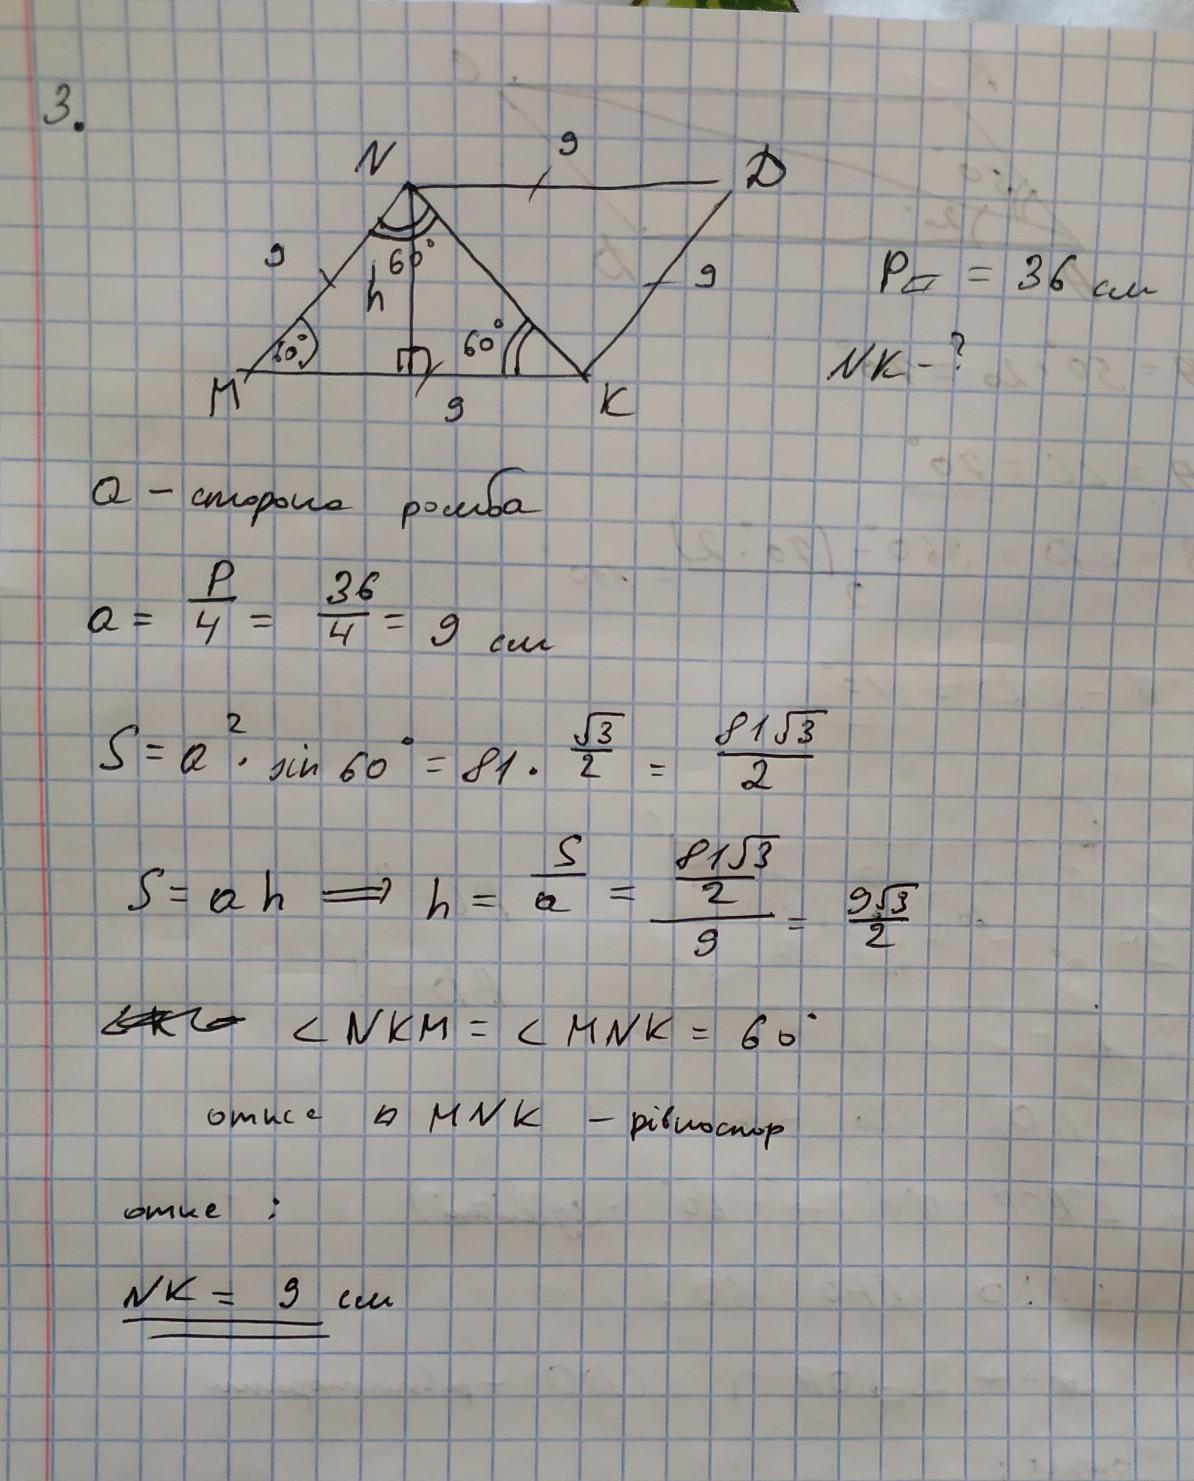 3.
N
9
D
9
60°
h
9
60°
60°
M
9
K
P▱ = 36 см
NK - ?
a - сторона ромба
a = P/4 = 36/4 = 9 см
S = a² · sin 60° = 81 · √3/2 = 81√3/2
S = a h ⟹ h = S/a = (81√3/2)/9 = 9√3/2
∠ NKM = ∠ MNK = 60°
отже △ MNK - рівностор
отже :
NK = 9 см